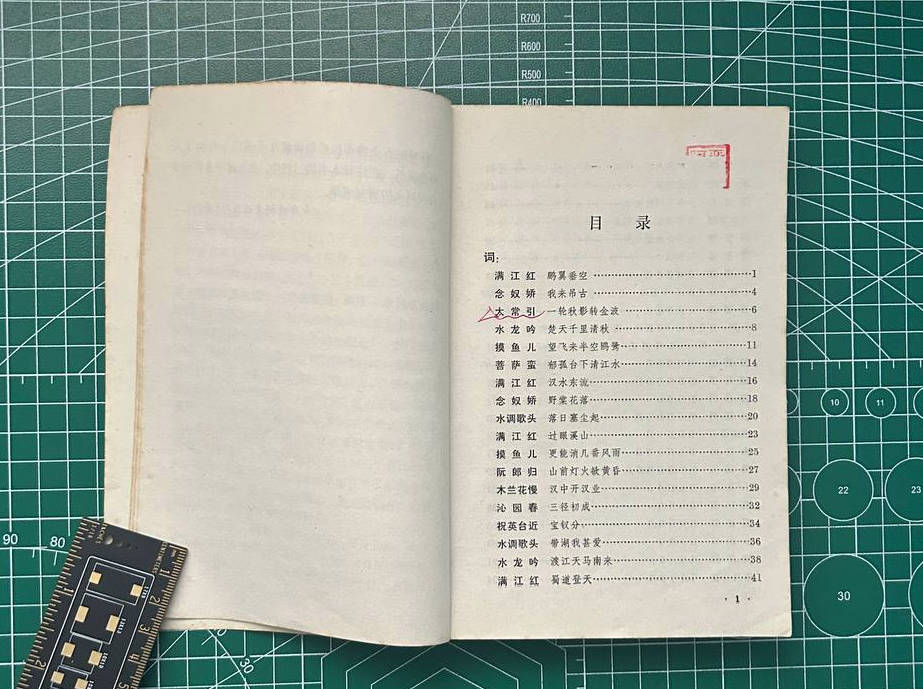 R700
R600
R500
R400
目 录
词：
满江红 鹏翼垂空 1
念奴娇 我来吊古 4
太常引 一轮秋影转金波 6
水龙吟 楚天千里清秋 8
摸鱼儿 望飞来半空鸥鹭 11
菩萨蛮 郁孤台下清江水 14
满江红 汉水东流 16
念奴娇 野棠花落 18
水调歌头 落日塞尘起 20
满江红 过眼溪山 23
摸鱼儿 更能消几番风雨 25
阮郎归 山前灯火欲黄昏 27
木兰花慢 汉中开汉业 29
沁园春 三径初成 32
祝英台近 宝钗分 34
水调歌头 带湖我甚爱 36
水龙吟 渡江天马南来 38
满江红 蜀道登天 41
· 1 ·
10
11
22
23
30
90
80
30